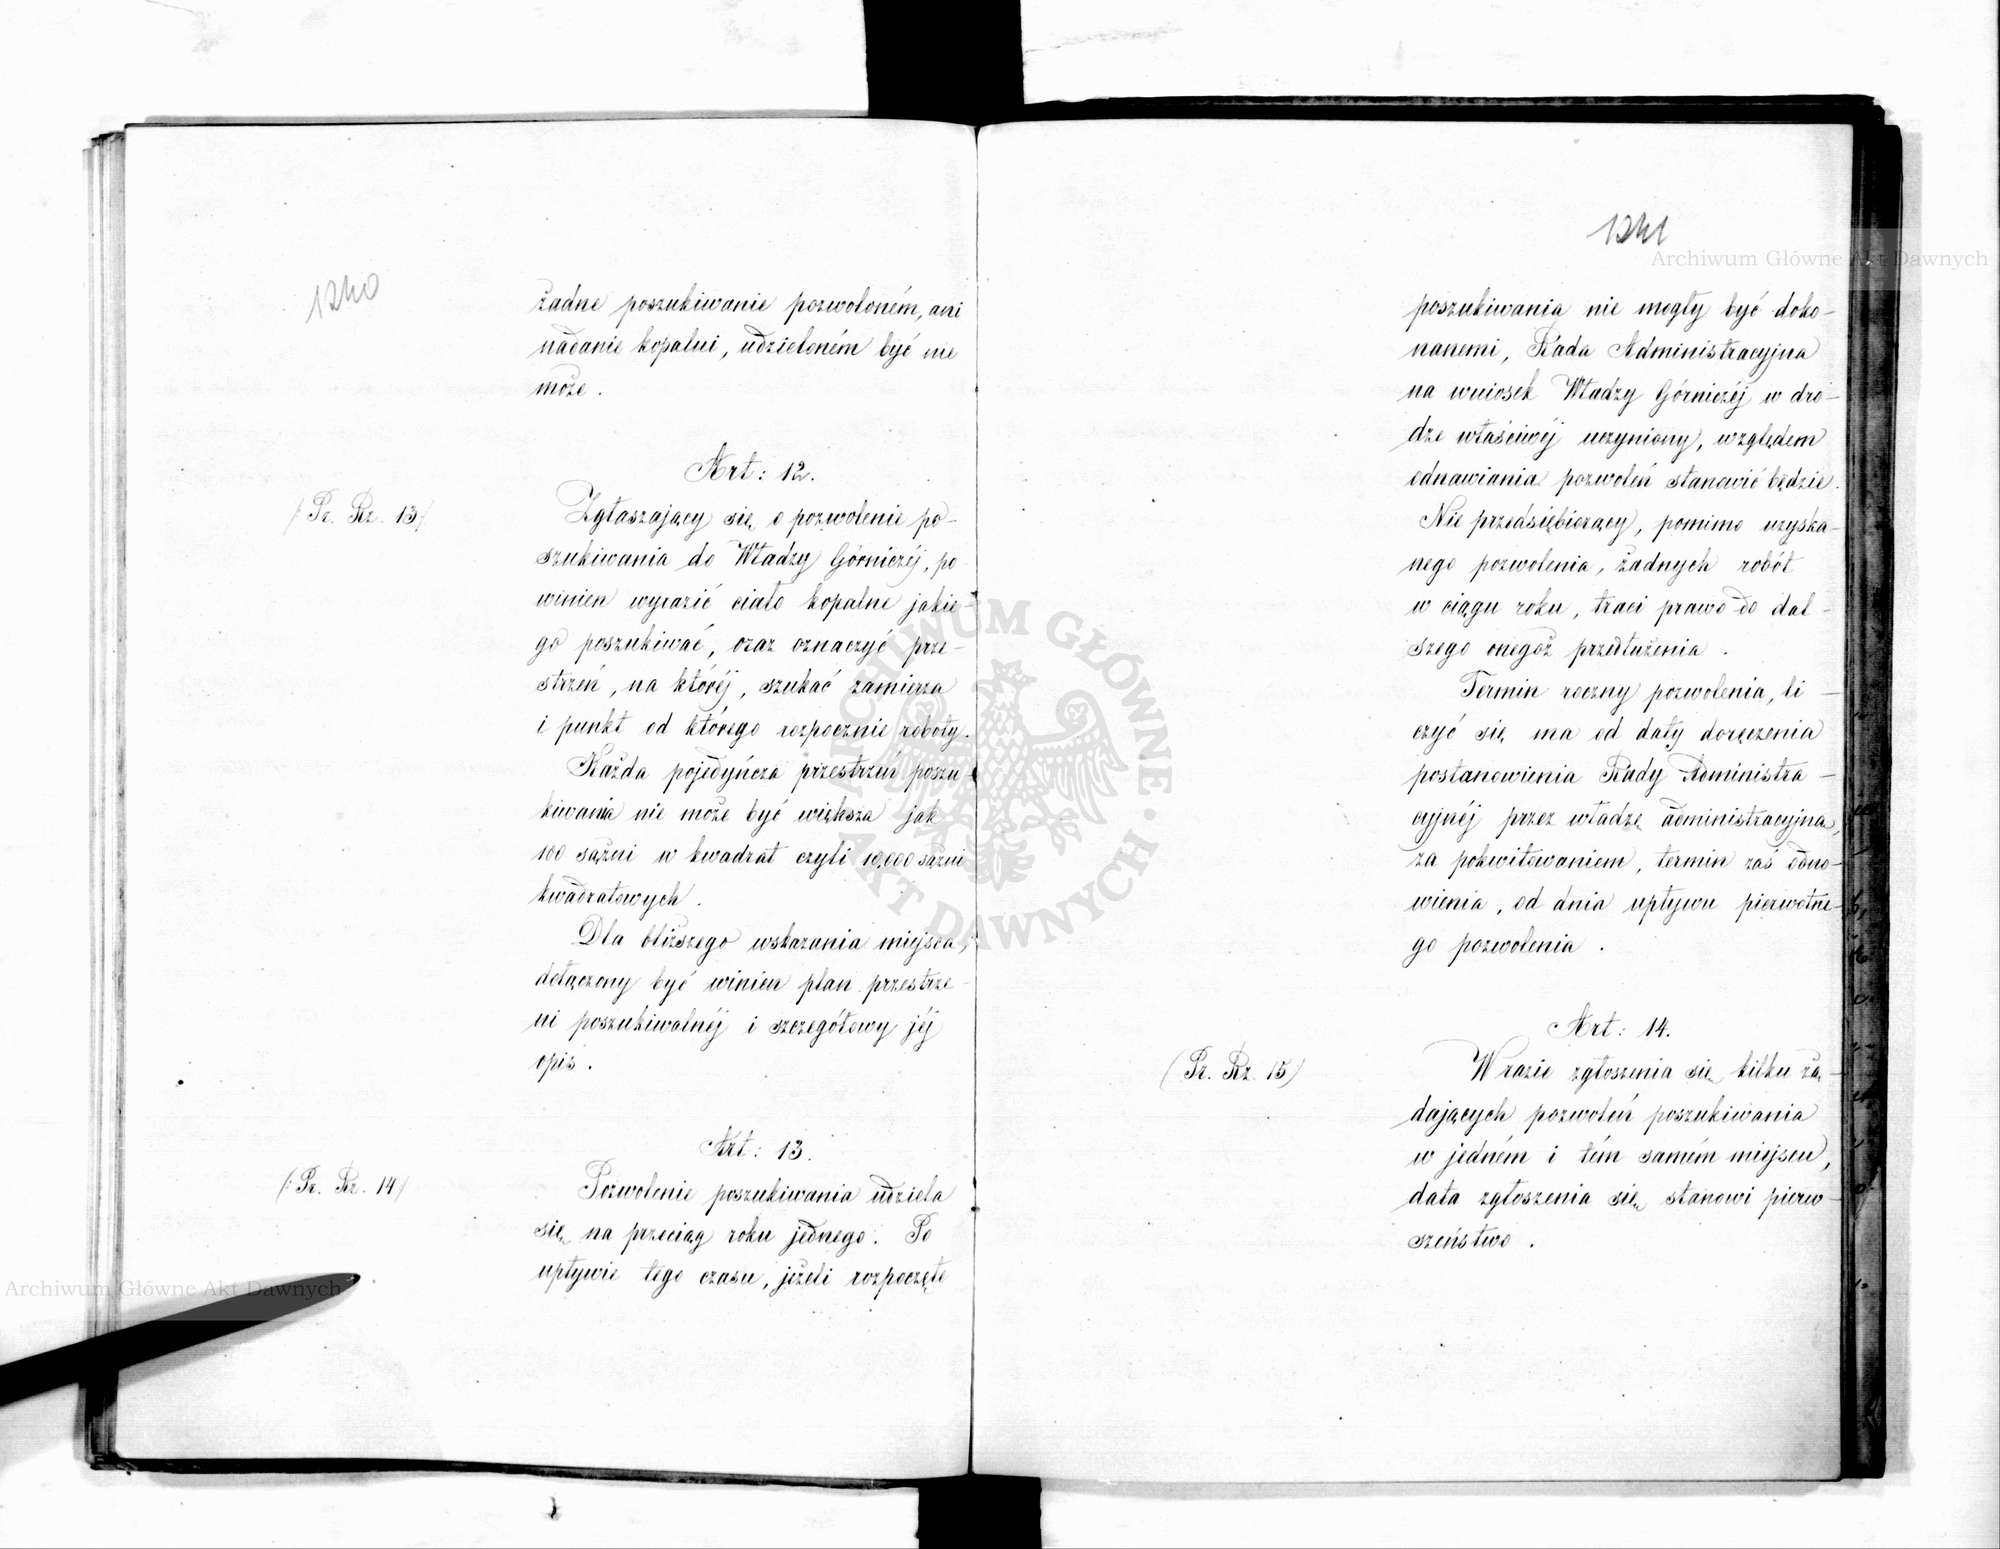 1240
żadne poszukiwanie pozwoloném, ani
nadanie kopalni, udzieloném być nie
może.
Art: 12.
(Pr. Rz. 13)
Zgłaszający się o pozwolenie po-
szukiwania do Władzy Górniczéj, po-
winien wyrazić ciało kopalne jakie-
go poszukiwać, oraz oznaczyć prze-
strzeń, na któréj, szukać zamierza
i punkt od którego rozpocznie roboty.
Każda pojedyńcza przestrzeń poszu-
kiwania nie może być większa jak
100 sążni w kwadrat czyli 10,000 sążni
kwadratowych.
Dla bliższego wskazania miejsca,
dołączony być winien plan przestrze-
ni poszukiwalnéj i szczegółowy jéj
opis.
Art: 13.
(: Pr. Rz. 14)
Pozwolenie poszukiwania udziela
się na przeciąg roku jednego. Po
upływie tego czasu, jeżeli rozpoczęte
1241
poszukiwania nie mogły być doko-
nanemi, Rada Administracyjna
na wniosek Władzy Górniczéj w dro-
dze właściwéj uczyniony, względem
odnawiania pozwoleń stanowić będzie.
Nie przedsiębiorący, pomimo uzyska-
nego pozwolenia, żadnych robót
w ciągu roku, traci prawo do dal-
szego onegoż przedłużenia.
Termin roczny pozwolenia, li-
czyć się ma od daty doręczenia
postanowienia Rady Administra-
cyjnéj przez władzę administracyjną,
za pokwitowaniem, termin zaś odno-
wienia, od dnia upływu pierwotne-
go pozwolenia.
Art: 14.
(Pr. Rz. 15)
W razie zgłoszenia się kilku żą-
dających pozwoleń poszukiwania
w jedném i tém samém miejscu,
data zgłoszenia się stanowi pierw-
szeństwo.
Archiwum Główne Akt Dawnych
Archiwum Główne Akt Dawnych
ARCHIWUM GŁÓWNE · AKT DAWNYCH ·